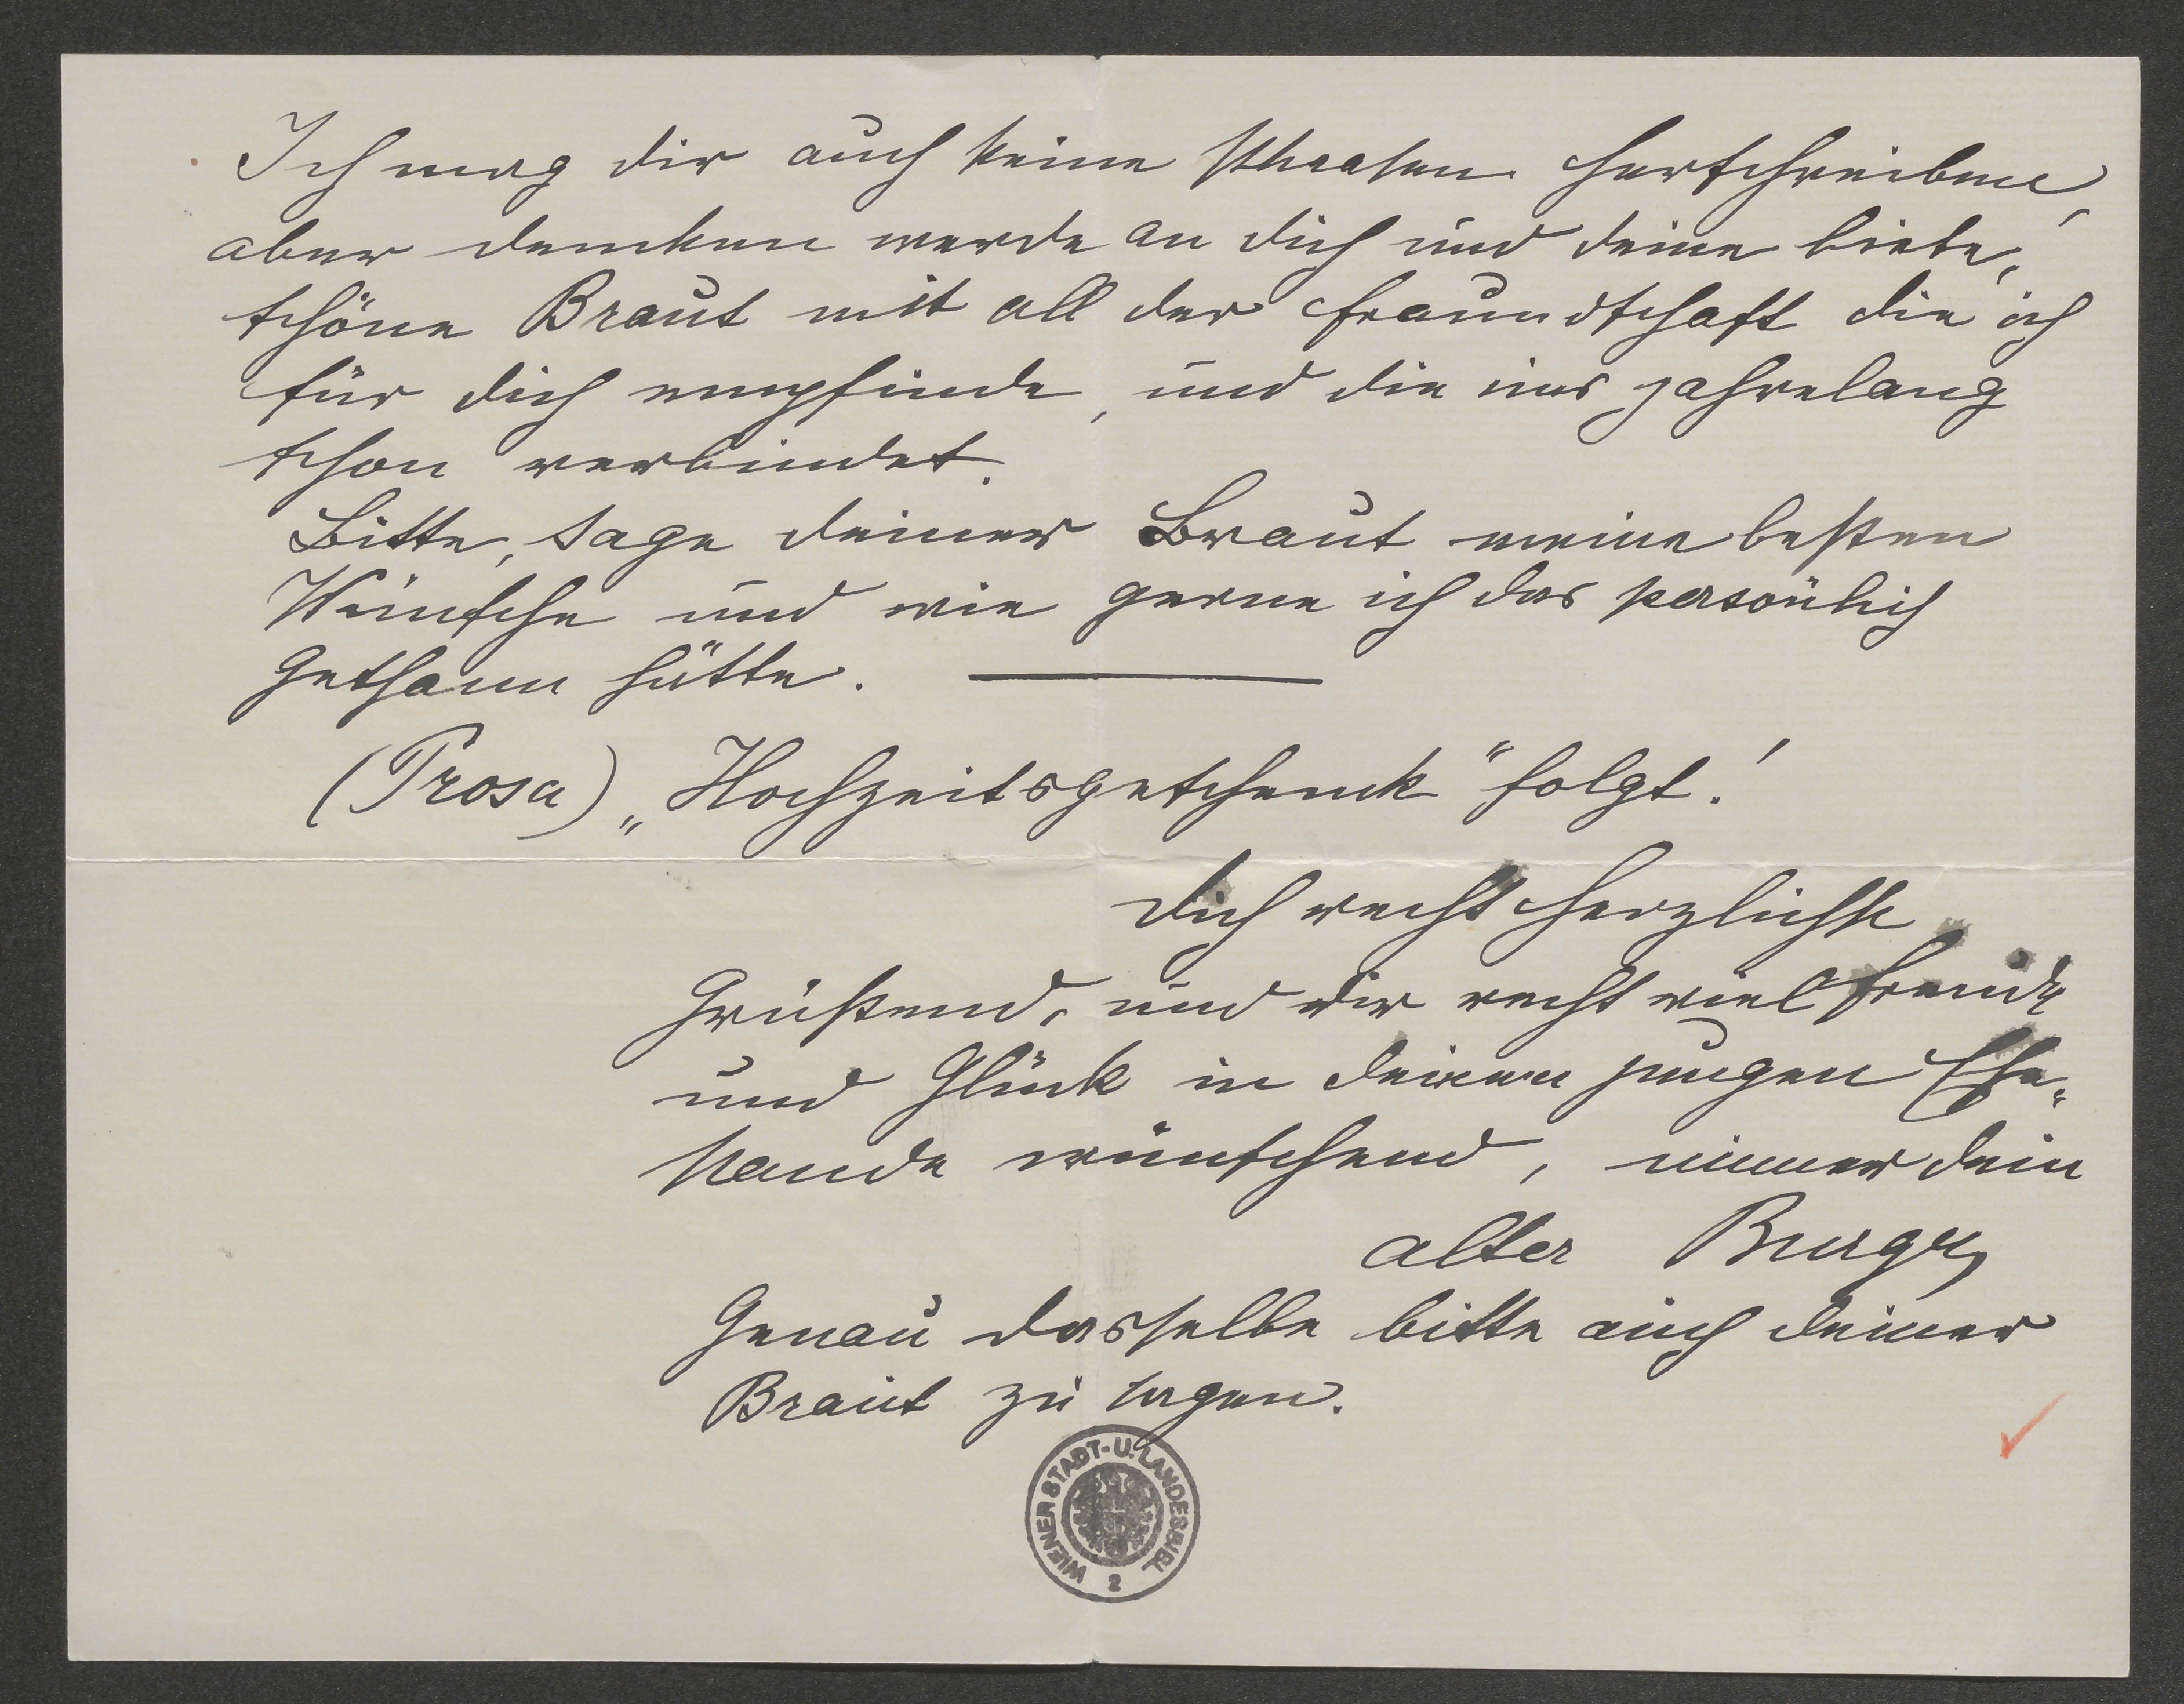 Ich mag dir auch keine Phrasen herschreiben,
aber dencken werde an dich und deine liebe,
schöne Braut mit all der Freundschaft die ich
für dich empfinde, und die uns jahrelang
schon verbindet.
Bitte, sage deiner Braut meine besten
Wünsche und wie gerne ich das persönlich
gethann hätte.
(Prosa) „Hochzeitsgeschenck“ folgt!
Dich recht herzlichst
Grüßend, und dir recht viel Freude
und Glück in deinen jungen Ehe-
stande wünschend, immer dein
alter
Genau dasselbe bitte auch deiner
Braut zu sagen.
WIENER STADT- U. LANDESBIBL
2